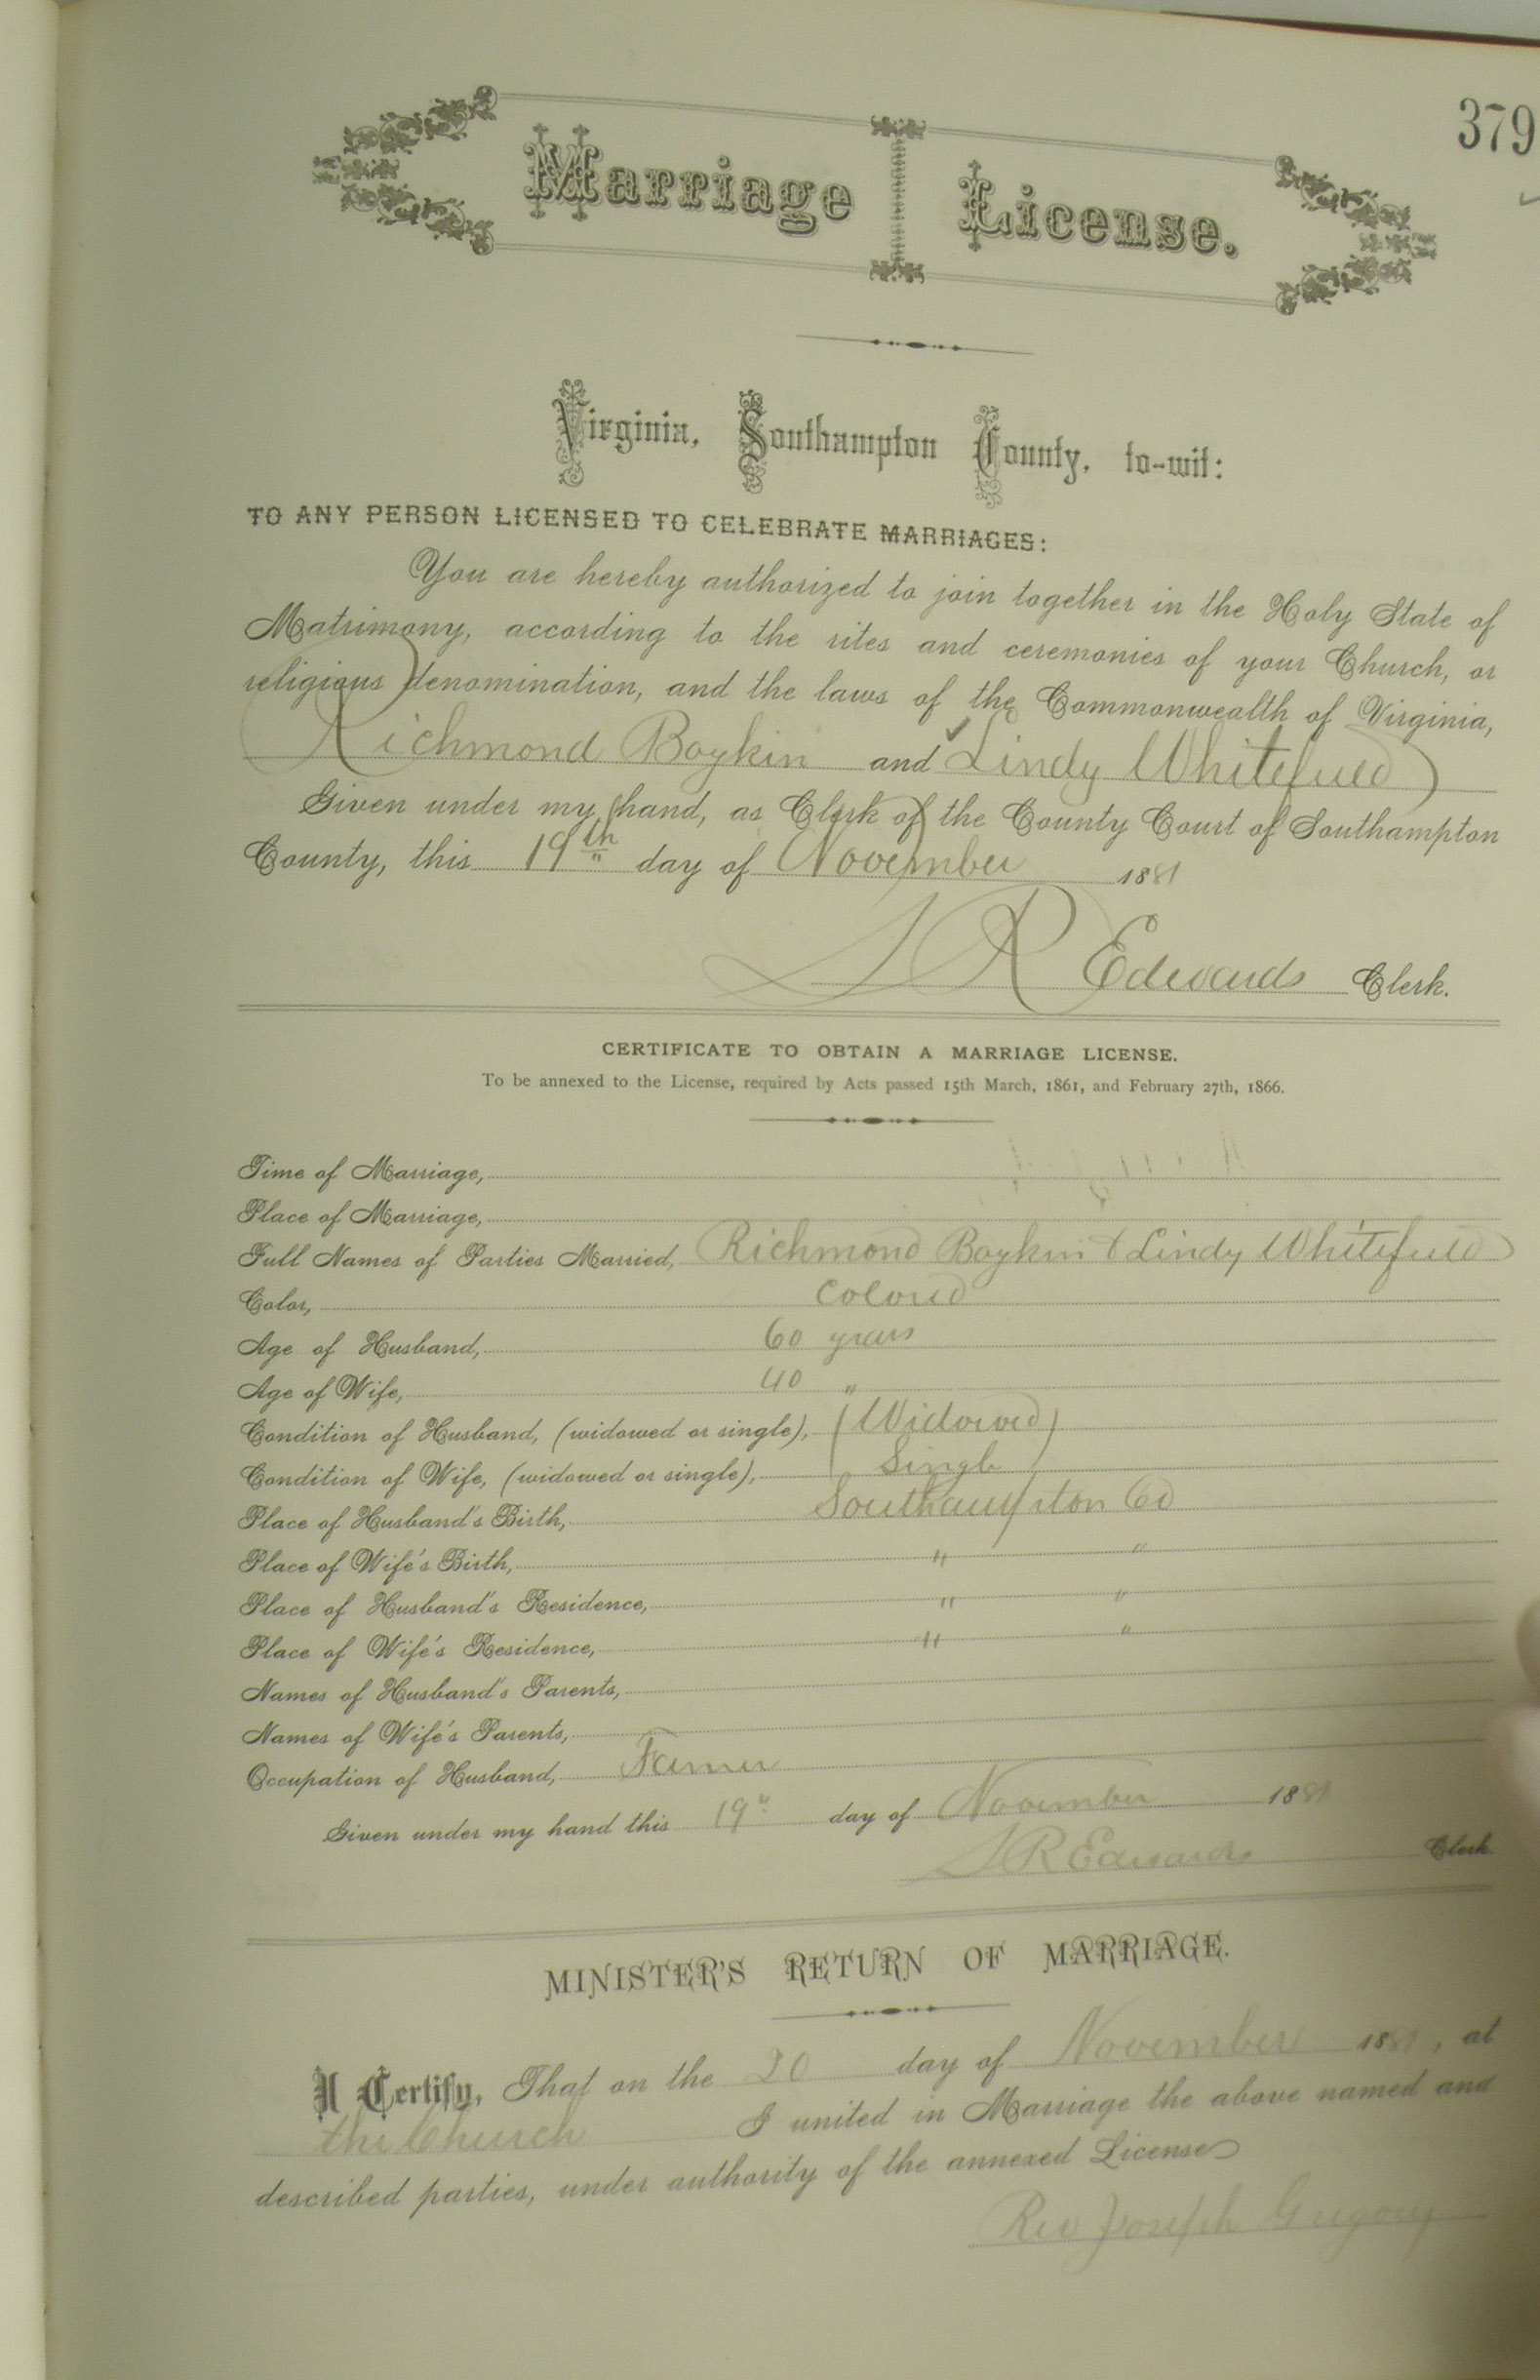 379
Marriage License.
Virginia, Southampton County, to-wit:
TO ANY PERSON LICENSED TO CELEBRATE MARRIAGES:
You are hereby authorized to join together in the Holy State of
Matrimony, according to the rites and ceremonies of your Church, or
religious denomination, and the laws of the Commonwealth of Virginia,
Richmond Boykin and Lindy Whitefield
Given under my hand, as Clerk of the County Court of Southampton
County, this 19th day of November 1881
L R Edwards Clerk.
CERTIFICATE TO OBTAIN A MARRIAGE LICENSE.
To be annexed to the License, required by Acts passed 15th March, 1861, and February 27th, 1866.
Time of Marriage,
Place of Marriage,
Full Names of Parties Married, Richmond Boykin & Lindy Whitefield
Color, Colored
Age of Husband, 60 years
Age of Wife, 40 "
Condition of Husband, (widowed or single), (Widowed)
Condition of Wife, (widowed or single), Single
Place of Husband's Birth, Southampton Co
Place of Wife's Birth, " "
Place of Husband's Residence, " "
Place of Wife's Residence, " "
Names of Husband's Parents,
Names of Wife's Parents,
Occupation of Husband, Farmer
Given under my hand this 19" day of November 1881
L R Edwards Clerk
MINISTER'S RETURN OF MARRIAGE.
I Certify, That on the 20 day of November 1881, at
the Church I united in Marriage the above named and
described parties, under authority of the annexed License
Rev Joseph Gregory